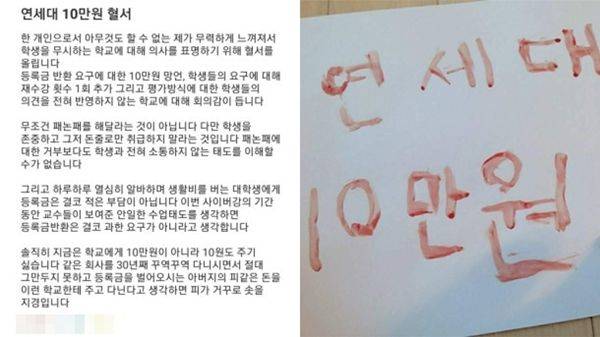 연세대 10만원 혈서
한 개인으로서 아무것도 할 수 없는 제가 무력하게 느껴져서
학생을 무시하는 학교에 대해 의사를 표명하기 위해 혈서를
올립니다
등록금 반환 요구에 대한 10만원 망언, 학생들의 요구에 대해
재수강 횟수 1회 추가 그리고 평가방식에 대한 학생들의
의견을 전혀 반영하지 않는 학교에 대해 회의감이 듭니다
무조건 패논패를 해달라는 것이 아닙니다 다만 학생을
존중하고 그저 돈줄로만 취급하지 말라는 것입니다 패논패에
대한 거부보다도 학생과 전혀 소통하지 않는 태도를 이해할
수가 없습니다
그리고 하루하루 열심히 알바하며 생활비를 버는 대학생에게
등록금은 결코 적은 부담이 아닙니다 이번 사이버강의 기간
동안 교수들이 보여준 안일한 수업태도를 생각하면
등록금반환은 결코 과한 요구가 아니라고 생각합니다
솔직히 지금은 학교에게 10만원이 아니라 10원도 주기
싫습니다 같은 회사를 30년째 꾸역꾸역 다니시면서 절대
그만두지 못하고 등록금을 벌어오시는 아버지의 피같은 돈을
이런 학교한테 주고 다닌다고 생각하면 피가 거꾸로 솟을
지경입니다
연세대
10만원